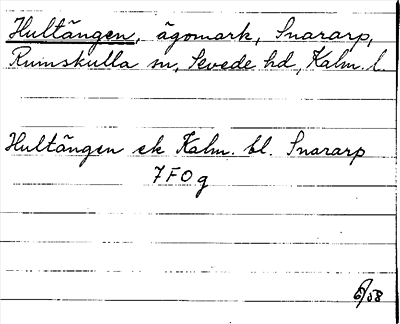 Hultängen, ägomark, Snararp,
Rumskulla sn, Sevede hd, Kalm. l.
Hultängen ek Kalm. bl. Snararp
7F0g
6/58